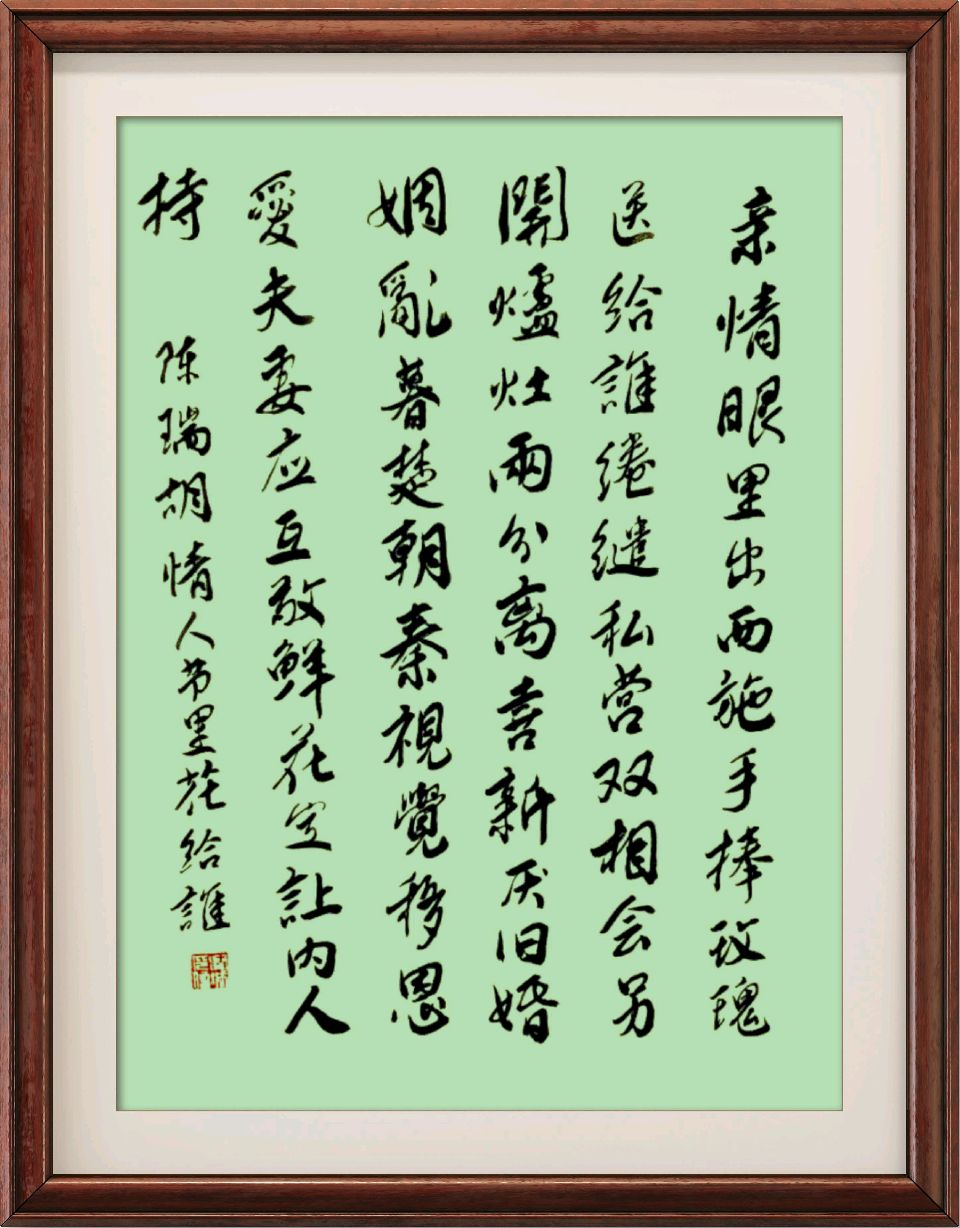 亲情眼里出西施手捧玫瑰
送给誰繾綣私营双相会另
開爐灶兩分离喜新厌旧婚
姻亂暮楚朝秦視覺移恩
愛夫妻应互敬鲜花定让内人
持
陈瑞胡情人节里花给誰